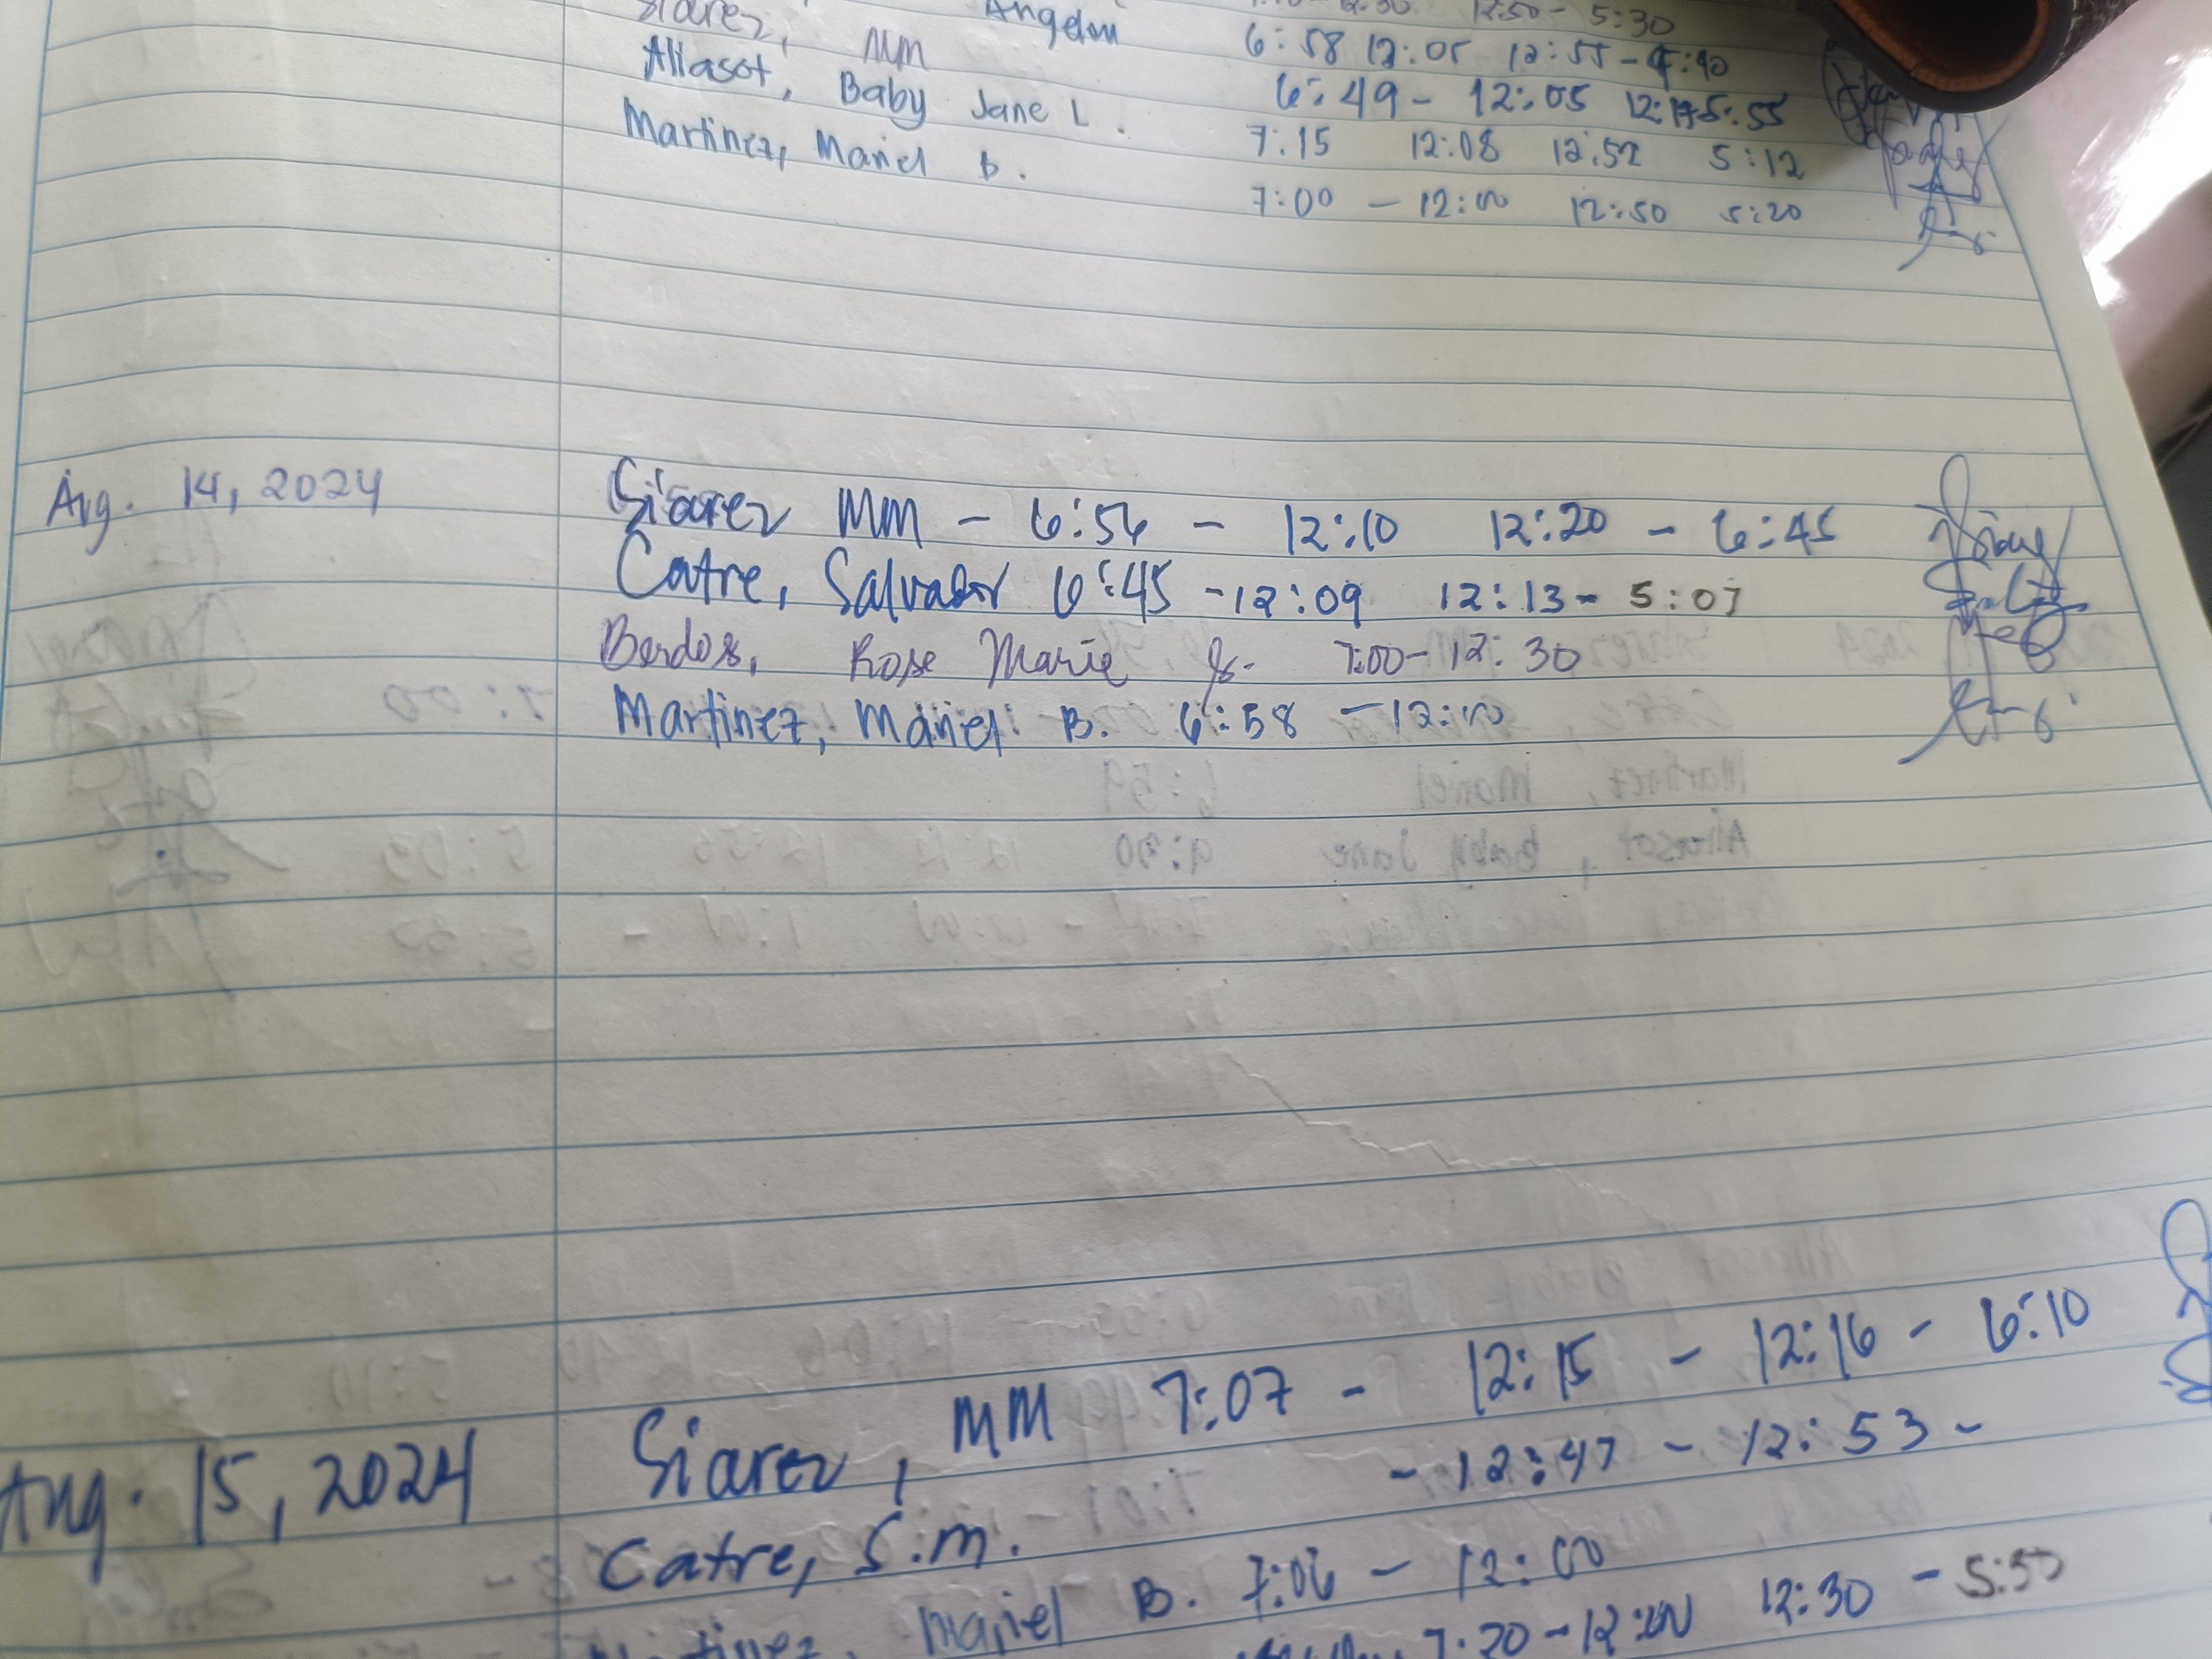 Angelou 12:50 - 5:30
Siarez, MM 6:58 12:05 12:55 - 5:40
Aliasot, Baby Jane L. 6:49 - 12:05 5:55
Martinez, Mariel B. 7:15 12:08 12:52 5:12
7:00 - 12:00 12:50 5:20
Aug. 14, 2024 Siarez MM - 6:56 - 12:10 12:20 - 6:45
Catre, Salvador 6:45 - 12:09 12:13 - 5:07
Berdos, Rose Marie 7:00 - 12:30
Martinez, Mariel B. 6:58 - 12:00
Aug. 15, 2024 Siarez, MM 7:07 - 12:15 - 12:16 - 6:10
Catre, S.M. - 12:47 - 12:53 -
Martinez, Mariel B. 7:06 - 12:00
7:20 - 12:00 12:30 - 5:50